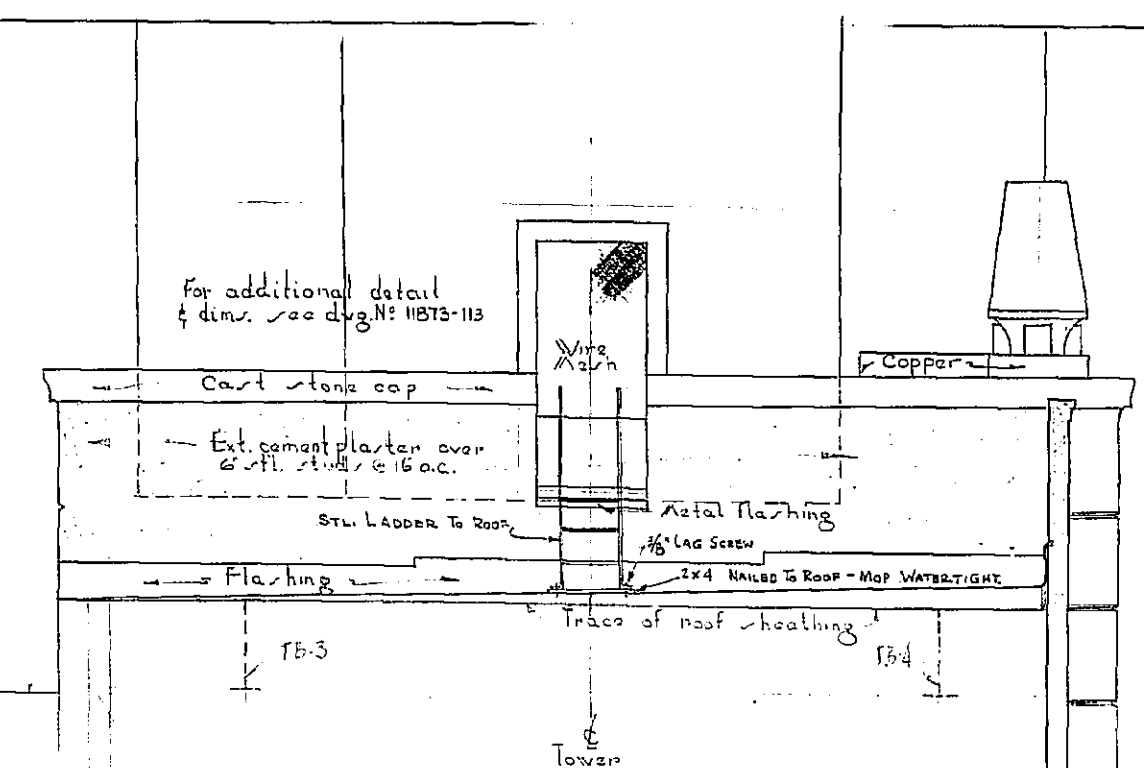 For additional detail
& dims. see dwg. Nº 11873-113
Wire
Mesh
Copper
Cast stone cap
Ext. cement plaster over
6" stl. studs @ 16 o.c.
Metal flashing
STL. LADDER TO ROOF
3/8" LAG SCREW
Flashing
2x4 NAILED TO ROOF - MOP WATERTIGHT
Trace of roof sheathing
TB-3
TB-4
℄
Tower